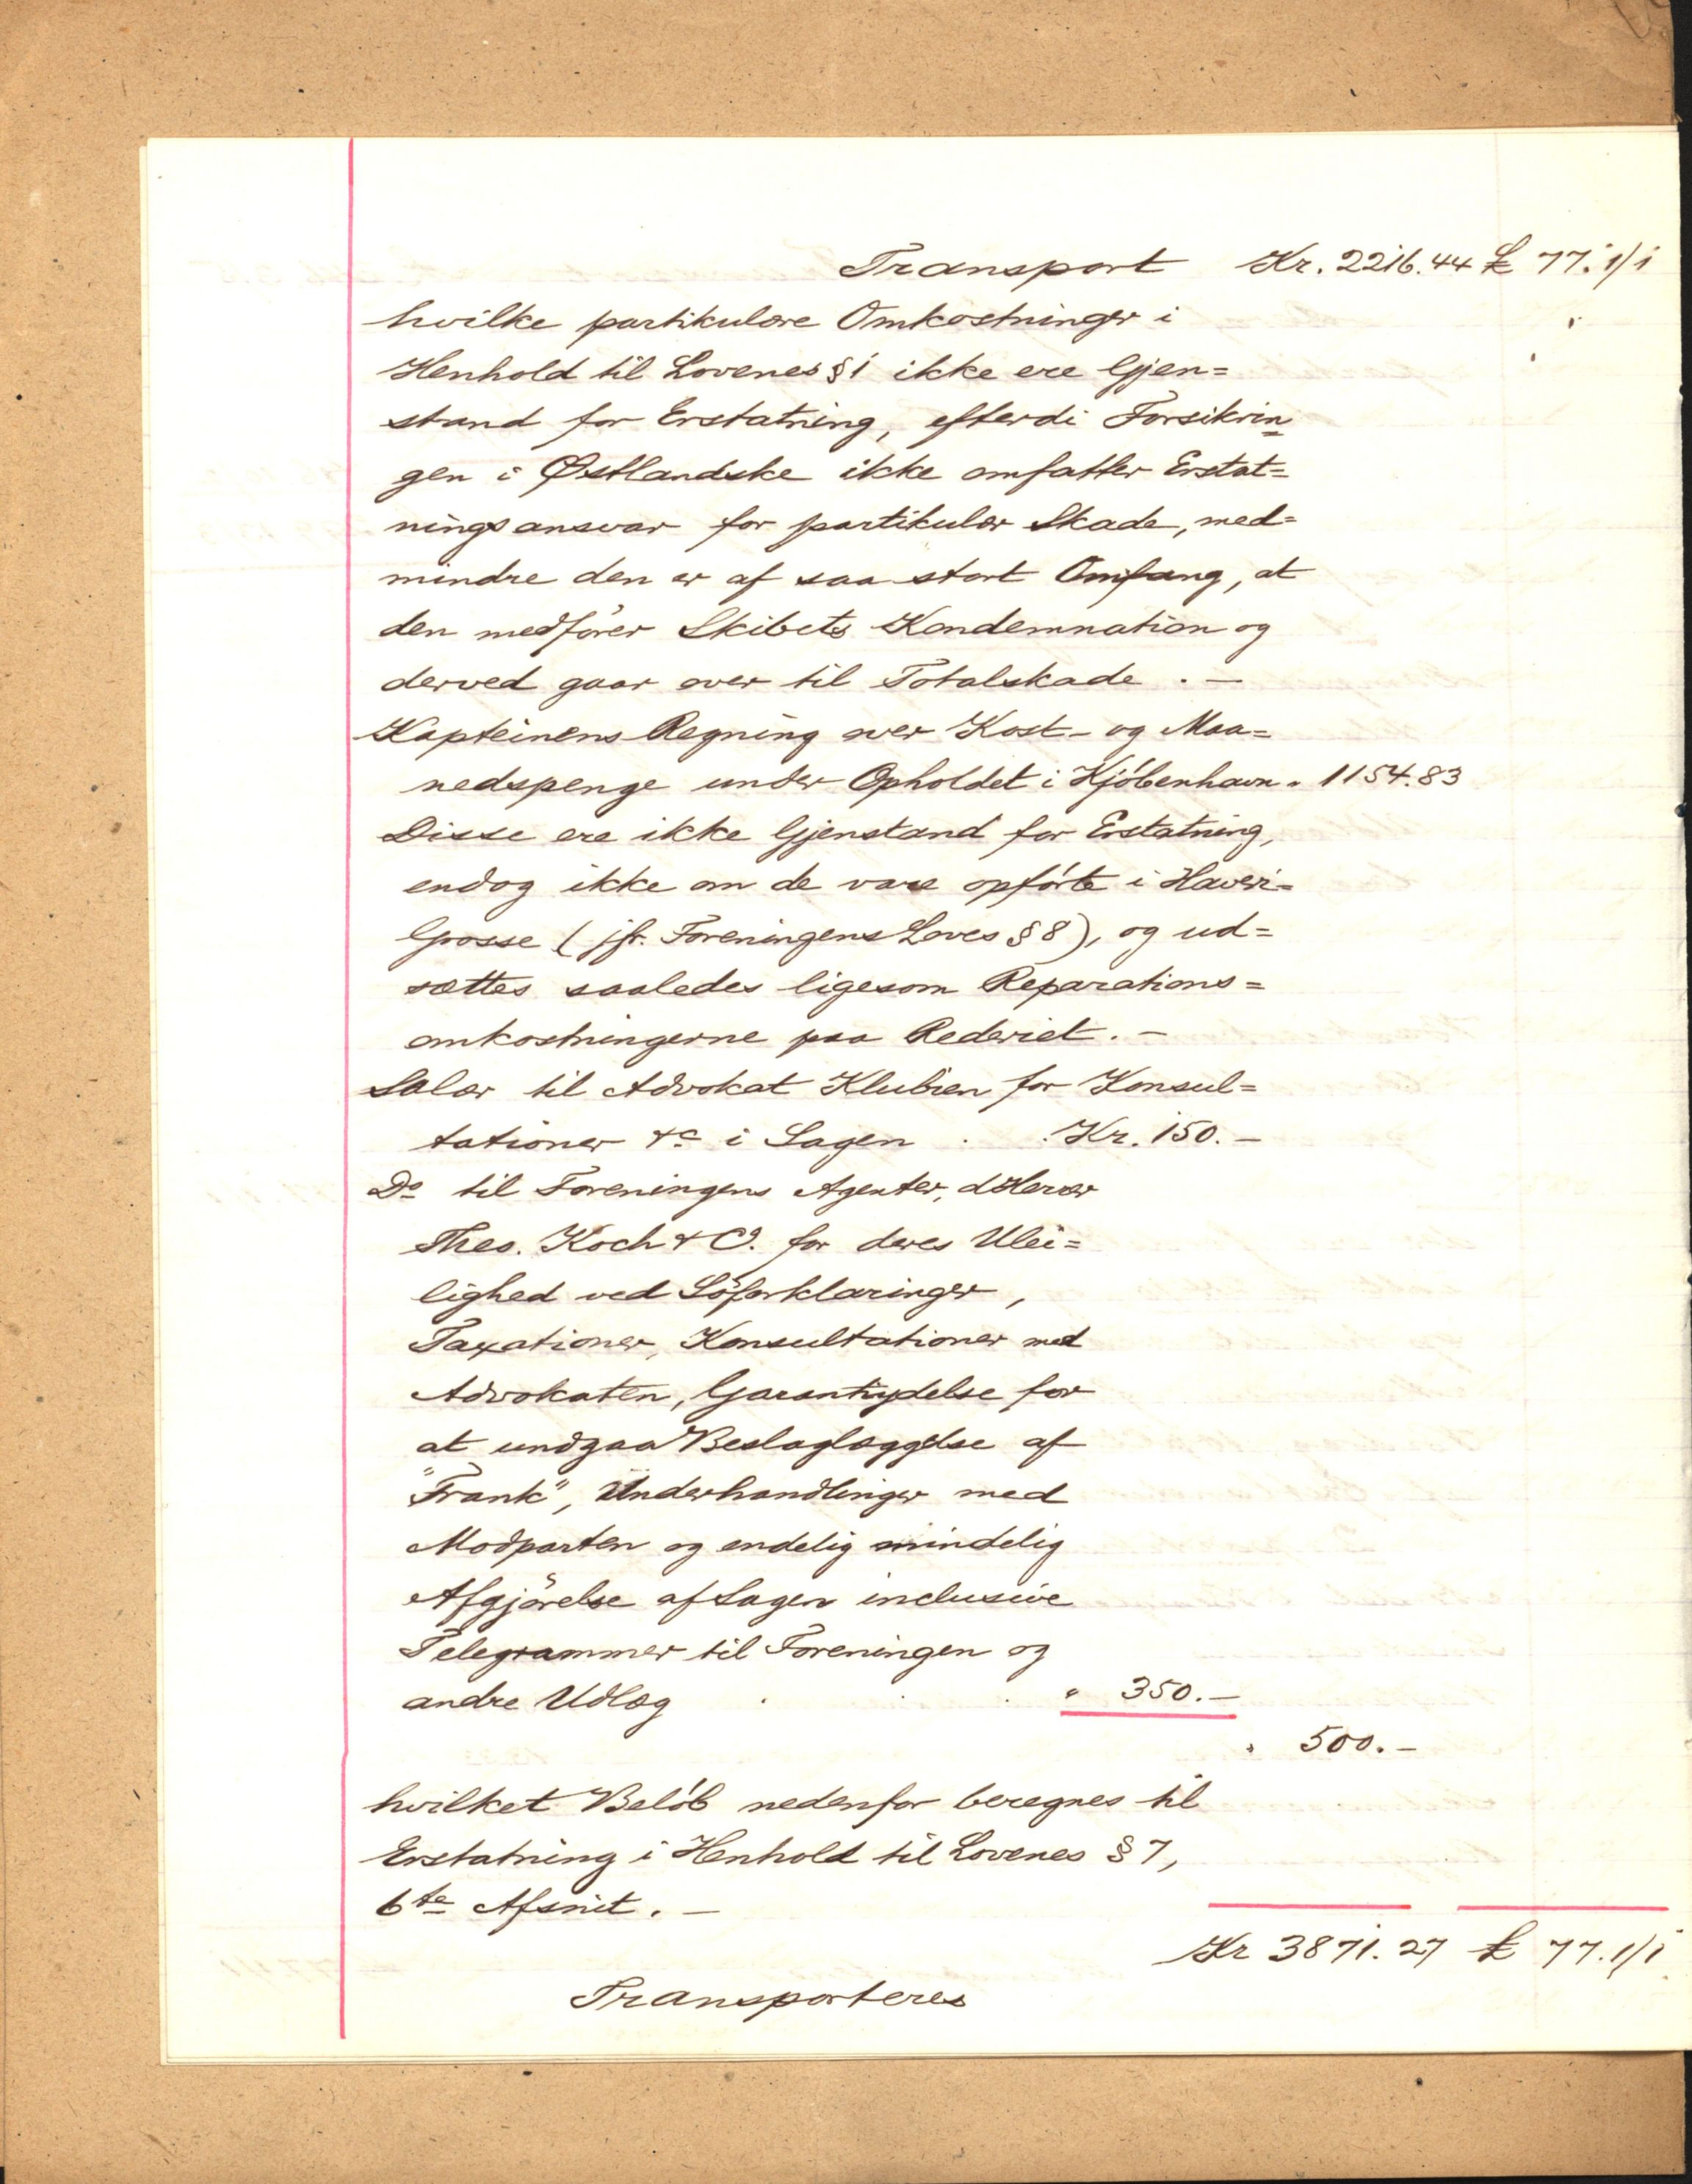 Transport Kr. 2216.44 £ 77.1/1
hvilke partikulære Omkostninger i
Henhold til Lovenes § 1 ikke ere Gjen=
stand for Erstatning, efterdi Forsikrin=
gen i Østlandske ikke omfatter Erstat=
ningsansvar for partikulær Skade, med=
mindre den er af saa stort Omfang, at
den medfører Skibets Kondemnation og
derved gaar over til Totalskade . —
Kapteinens Regning over Kost- og Maa=
nedspenge under Opholdet i Kjøbenhavn " 1154.83
Disse ere ikke Gjenstand for Erstatning,
endog ikke om de vare opførte i Haveri-
Grosse ( jfr. Foreningens Loves § 8 ), og ud=
sættes saaledes ligesom Reparations=
omkostningerne paa Rederiet. —
Salær til Advokat Klubien for Konsul=
tationer &c i Sagen . . Kr. 150. —
Do til Foreningens Agenter, dHerrer
Theo. Koch & Co. for deres Ulei=
lighed ved Søforklaringer,
Taxationer, Konsultationer med
Advokaten, Garantiydelse for
at undgaa Beslaglæggelse af
"Frank", Underhandlinger med
Modparten og endelig mindelig
Afgjørelse af Sagen inclusive
Telegrammer til Foreningen og
andre Udlæg . . . " 350. —
" 500. —
hvilket Beløb nedenfor beregnes til
Erstatning i Henhold til Lovenes § 7,
6te Afsnit. —
Kr 3871.27 £ 77.1/1
Transporteres